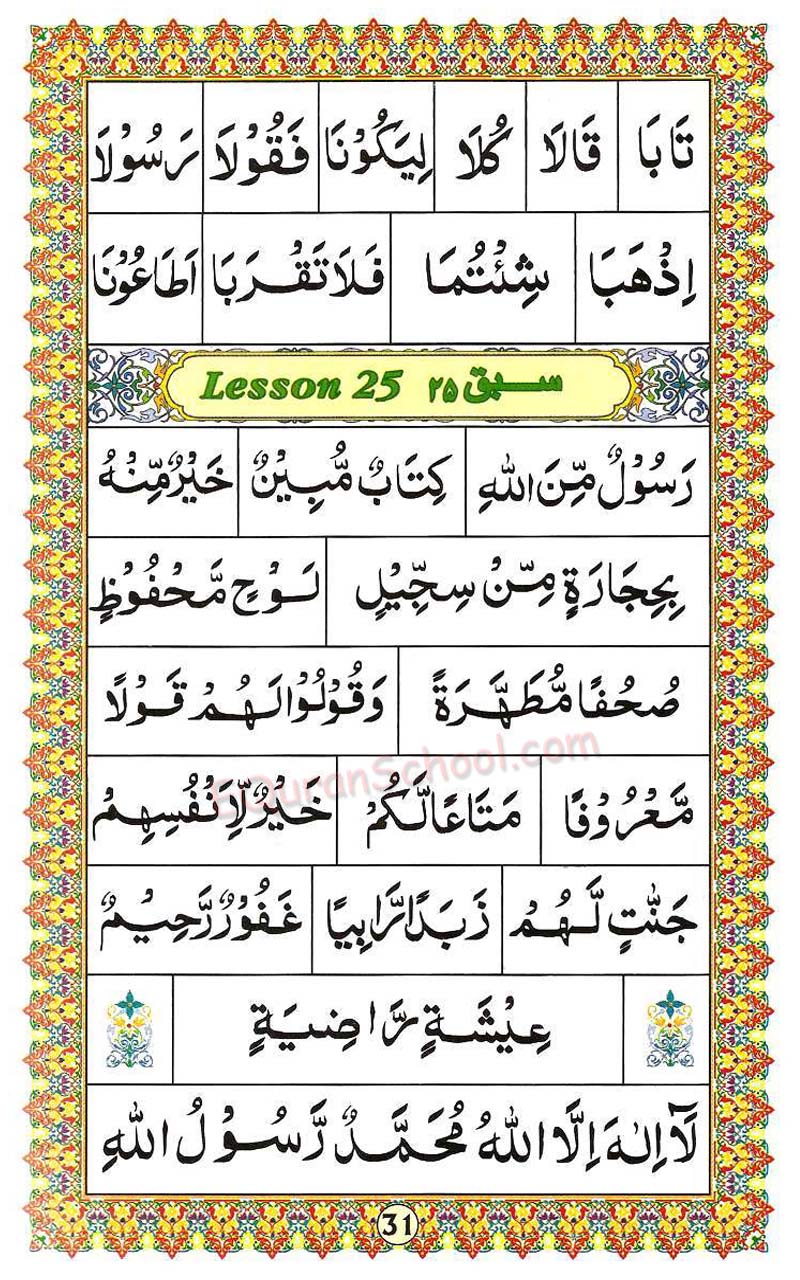 تَابَا قَالَا كُلَا لِيَكُوْنَا فَقُوْلَا رَسُوْلَا
اِذْهَبَا شِئْتُمَا فَلَا تَقْرَبَا اَطَاعُوْنَا
Lesson 25 سبق ۲۵
رَسُوْلٌ مِّنَ اللّٰهِ كِتَابٌ مُّبِيْنٌ خَيْرٌ مِّنْهُ
بِحِجَارَةٍ مِّنْ سِجِّيْلٍ لَوْحٍ مَّحْفُوْظٍ
صُحُفًا مُّطَهَّرَةً وَقُوْلُوْا لَهُمْ قَوْلًا
مَّعْرُوْفًا مَتَاعًا لَّكُمْ خَيْرٌ لِّاَنْفُسِهِمْ
جَنّٰتٍ لَّهُمْ زَبَدًا رَّابِيًا غَفُوْرٌ رَّحِيْمٌ
عِيْشَةٍ رَّاضِيَةٍ
لَآ اِلٰهَ اِلَّا اللّٰهُ مُحَمَّدٌ رَّسُوْلُ اللّٰهِ
31
EQuranSchool.com